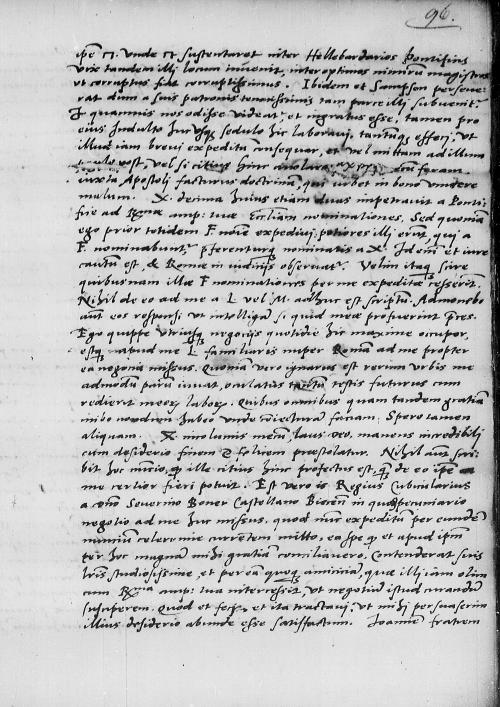 96.
unde sustentaret inter Hellebardarios Pontificis
tandem illi locum invenit, inter optimos nimirum magistros
ut corruptus fiat corruptissimus. Ibidem et Sampson perseve-
rat dum a suis patronis tam parce illi subvenit~
quamvis nos odisse videat~ et ingratus esse, tamen pro
eius Indulto sedulo hic laboravi, effeci, ut
illud iam brevi expeditum consequar, et vel mittam ad illum
vel si citius hinc
iuxta Apostoli facturus doctrinam, qui iubet in bono vincere
malum. X. decima huius etiam duas impetravit a Ponti-
fice ad amp: tuae Ecclesiam nominationes, Sed quoniam
ego prior totidem F. nomine expedivi, potiores illi erunt, qui a
F. nominabunt~ nominatis a X. Idem et iure
cautum est, & Romae in iudiciis observat~. Velim itaque scire
quibusnam illae F. nominationes per me expeditae cesserint.
Nihil de eo ad me a L vel M. adhuc est scriptum. Admonebo
eos responsi ut intelligam si quid meae profuerint preces.
Ego quippe utriusque negociis quotidie hic maxime occupor,
estque apud me L. familiaris nuper Romam ad me propter
ea negocia missus. Quoniam vero ignarus est rerum urbis me
admodum parum iuvat, oculatus tantum testis futurus cum
redierit meorum laborum. Quibus omnibus quam tandem gratiam
inibo nondum habeo unde coniecturam faciam. Spero tamen
aliquam. X. incolumis laus deo, manens incredibili
cum desiderio finem praestolatur. Nihil aut scri-
bit hoc nuncio, ille citius hinc profectus est, de eo ipse a
me certior fieri potuit. Est vero is Regius Cubicularius
a Severino Boner Castellano in pecuniario
negotio ad me huc missus, quod nunc expeditum per eundem
nuncium celerrime currentem mitto, ea spe et apud ipsum
hoc magnam mihi gratiam conciliavero. Contenderat suis
literis studiosissime, et per eam quoque amiciciam, quae illi iam olim
cum amp: tua intercessit, ut negotium istud curandum
susciperem. Quod et feci, et ita tractavi, ut mihi persuaserim
illius desiderio abunde esse satisfactum. Ioannem fratrem